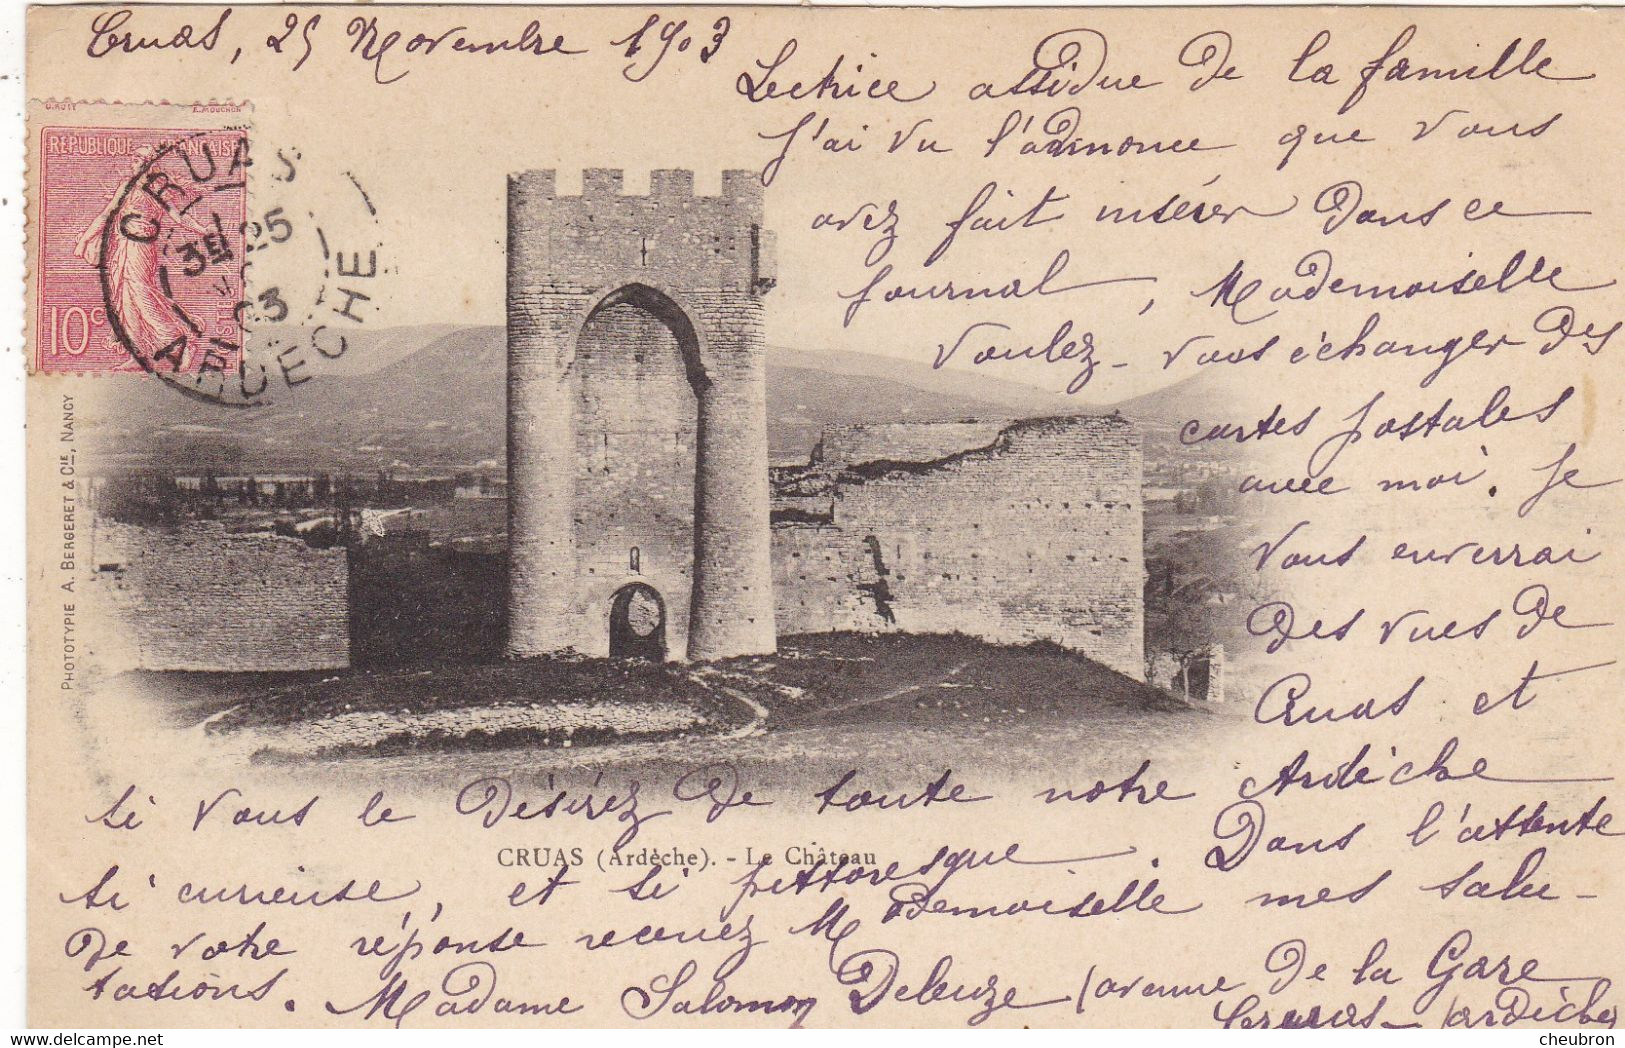 Cruas, 25 Novembre 1903
Lectrice assidue de la famille
j'ai vu l'annonce que vous
avez fait insérer dans ce
journal, Mademoiselle
Voulez-vous échanger des
cartes postales
avec moi. Je
vous enverrai
des vues de
Cruas et
si vous le désirez de toute notre Ardèche
si curieuse, et si pittoresque. Dans l'attente
de votre réponse recevez Mademoiselle mes salu-
tations. Madame Salomon Deleuze / avenue de la Gare
Cruas - (ardèche)
O. ROTY E. MOUCHON
REPUBLIQUE FRANÇAISE
10 c
POSTES
CRUAS
3E 25
03
ARDECHE
PHOTOTYPIE A. BERGERET & CIE, NANCY
CRUAS (Ardèche). - Le Château
cheubron - delcampe.net